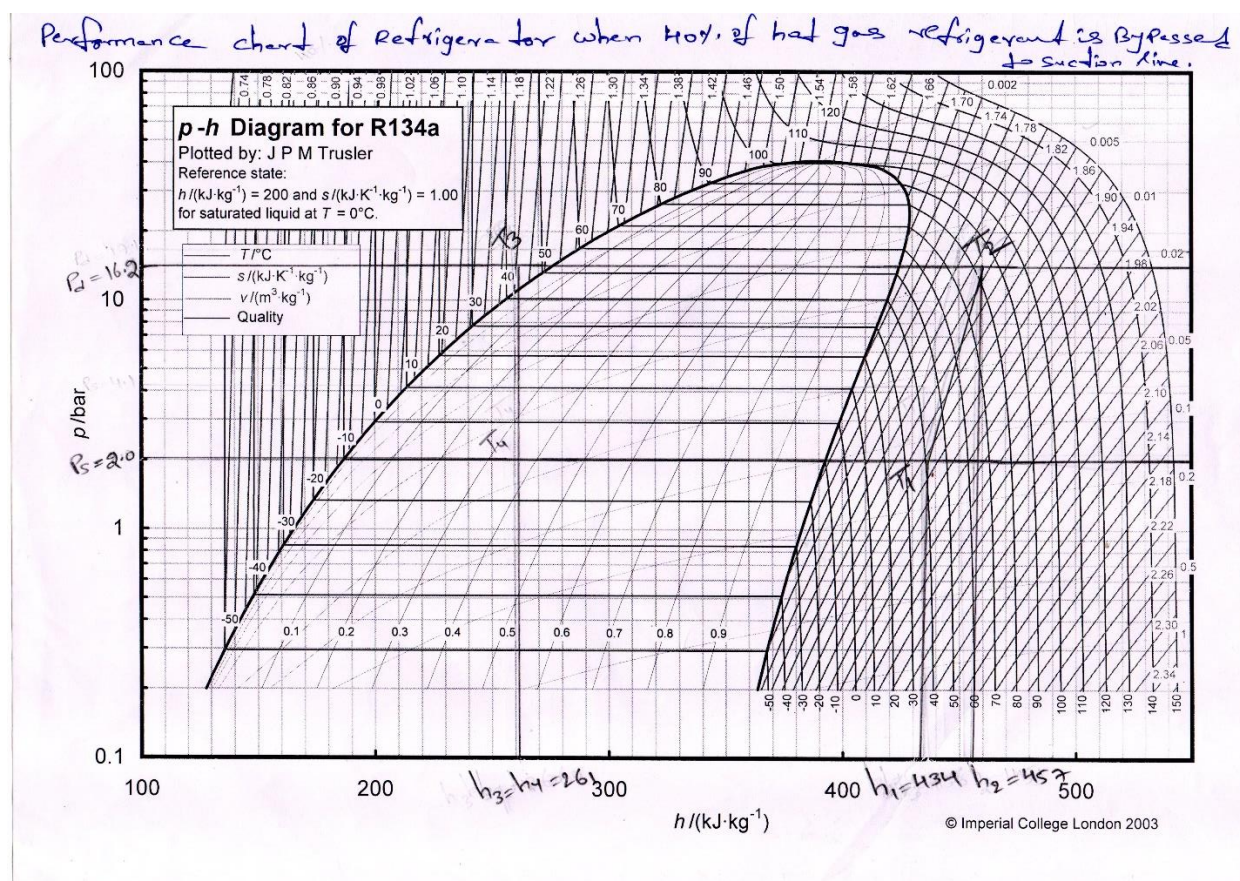 Performance chart of Refrigerator when 40% of hot gas refrigerant is ByPassed
to suction line.
100
p-h Diagram for R134a
Plotted by: J P M Trusler
Reference state:
h/(kJ·kg⁻¹) = 200 and s/(kJ·K⁻¹·kg⁻¹) = 1.00
for saturated liquid at T = 0°C.
T/°C
s/(kJ·K⁻¹·kg⁻¹)
v/(m³·kg⁻¹)
Quality
0.74 0.78 0.82 0.86 0.90 0.94 0.98 1.02 1.06 1.10 1.14 1.18 1.22 1.26 1.30 1.34 1.38 1.42 1.46 1.50 1.54 1.58 1.62 1.66
1.70 1.74 1.78 1.82 1.86 1.90 1.94 1.98 2.02 2.06 2.10 2.14 2.18 2.22 2.26 2.30 2.34
0.002 0.005 0.01 0.02 0.05 0.1 0.2 0.5 1
120
110
100
90
80
70
60
50
40
30
20
10
0
-10
-20
-30
-40
-50
T3
T2
T4
T1
P2=16.2
10
p/bar
Ps=2.0
1
0.1 0.2 0.3 0.4 0.5 0.6 0.7 0.8 0.9
-50 -40 -30 -20 -10 0 10 20 30 40 50 60 70 80 90 100 110 120 130 140 150
0.1
100 200 300 400 500
h3=h4=261
h1=434 h2=457
h/(kJ·kg⁻¹)
© Imperial College London 2003